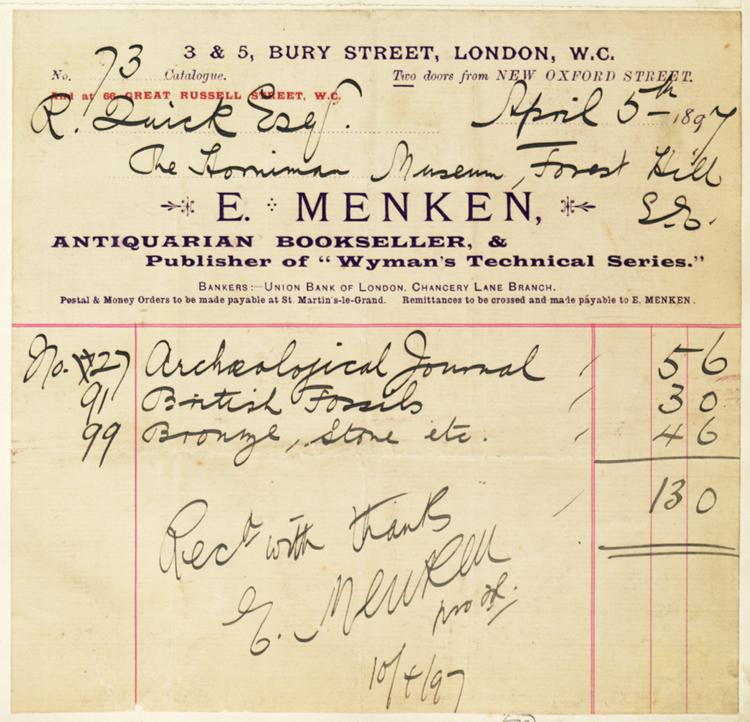 3 & 5, BURY STREET, LONDON, W.C.
No. 73 Catalogue. Two doors from NEW OXFORD STREET.
And at 66 GREAT RUSSELL STREET, W.C.
R. Quick Esq. April 5th 1897
The Horniman Museum, Forest Hill
S.E.
E. MENKEN,
ANTIQUARIAN BOOKSELLER, &
Publisher of "Wyman's Technical Series."
BANKERS:—UNION BANK OF LONDON, CHANCERY LANE BRANCH.
Postal & Money Orders to be made payable at St. Martin's-le-Grand. Remittances to be crossed and made payable to E. MENKEN.
No. 27 Archæological Journal / 5 6
91 British Fossils / 3 0
99 Bronze, Stone etc. / 4 6
/ 13 0
Recd with thanks
E. Menken
10/4/97